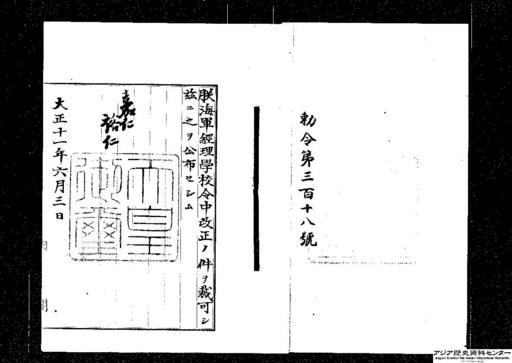 勅令第三百十八號
朕海軍經理學校令中改正ノ件ヲ裁可シ
玆ニ之ヲ公布セシム
嘉仁
裕仁
天皇御璽
大正十一年六月三日
アジア歴史資料センター
Japan Center for Asian Historical Records